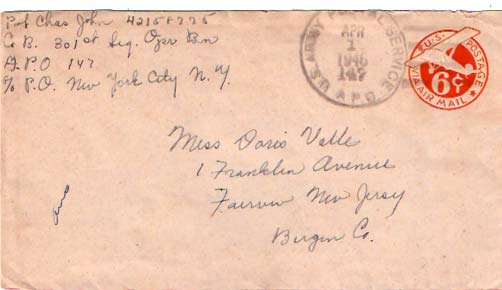 Pvt Chas John 42158225
Co B. 301st Sig. Opr Bn
A.P.O 147
c/o P.O. New York City N.Y.
U.S. ARMY POSTAL SERVICE
APR
1
1946
147
A.P.O.
U.S. POSTAGE
6¢
VIA AIR MAIL
Miss Doris Valle
1 Franklin Avenue
Fairview New Jersy
Bergen Co.